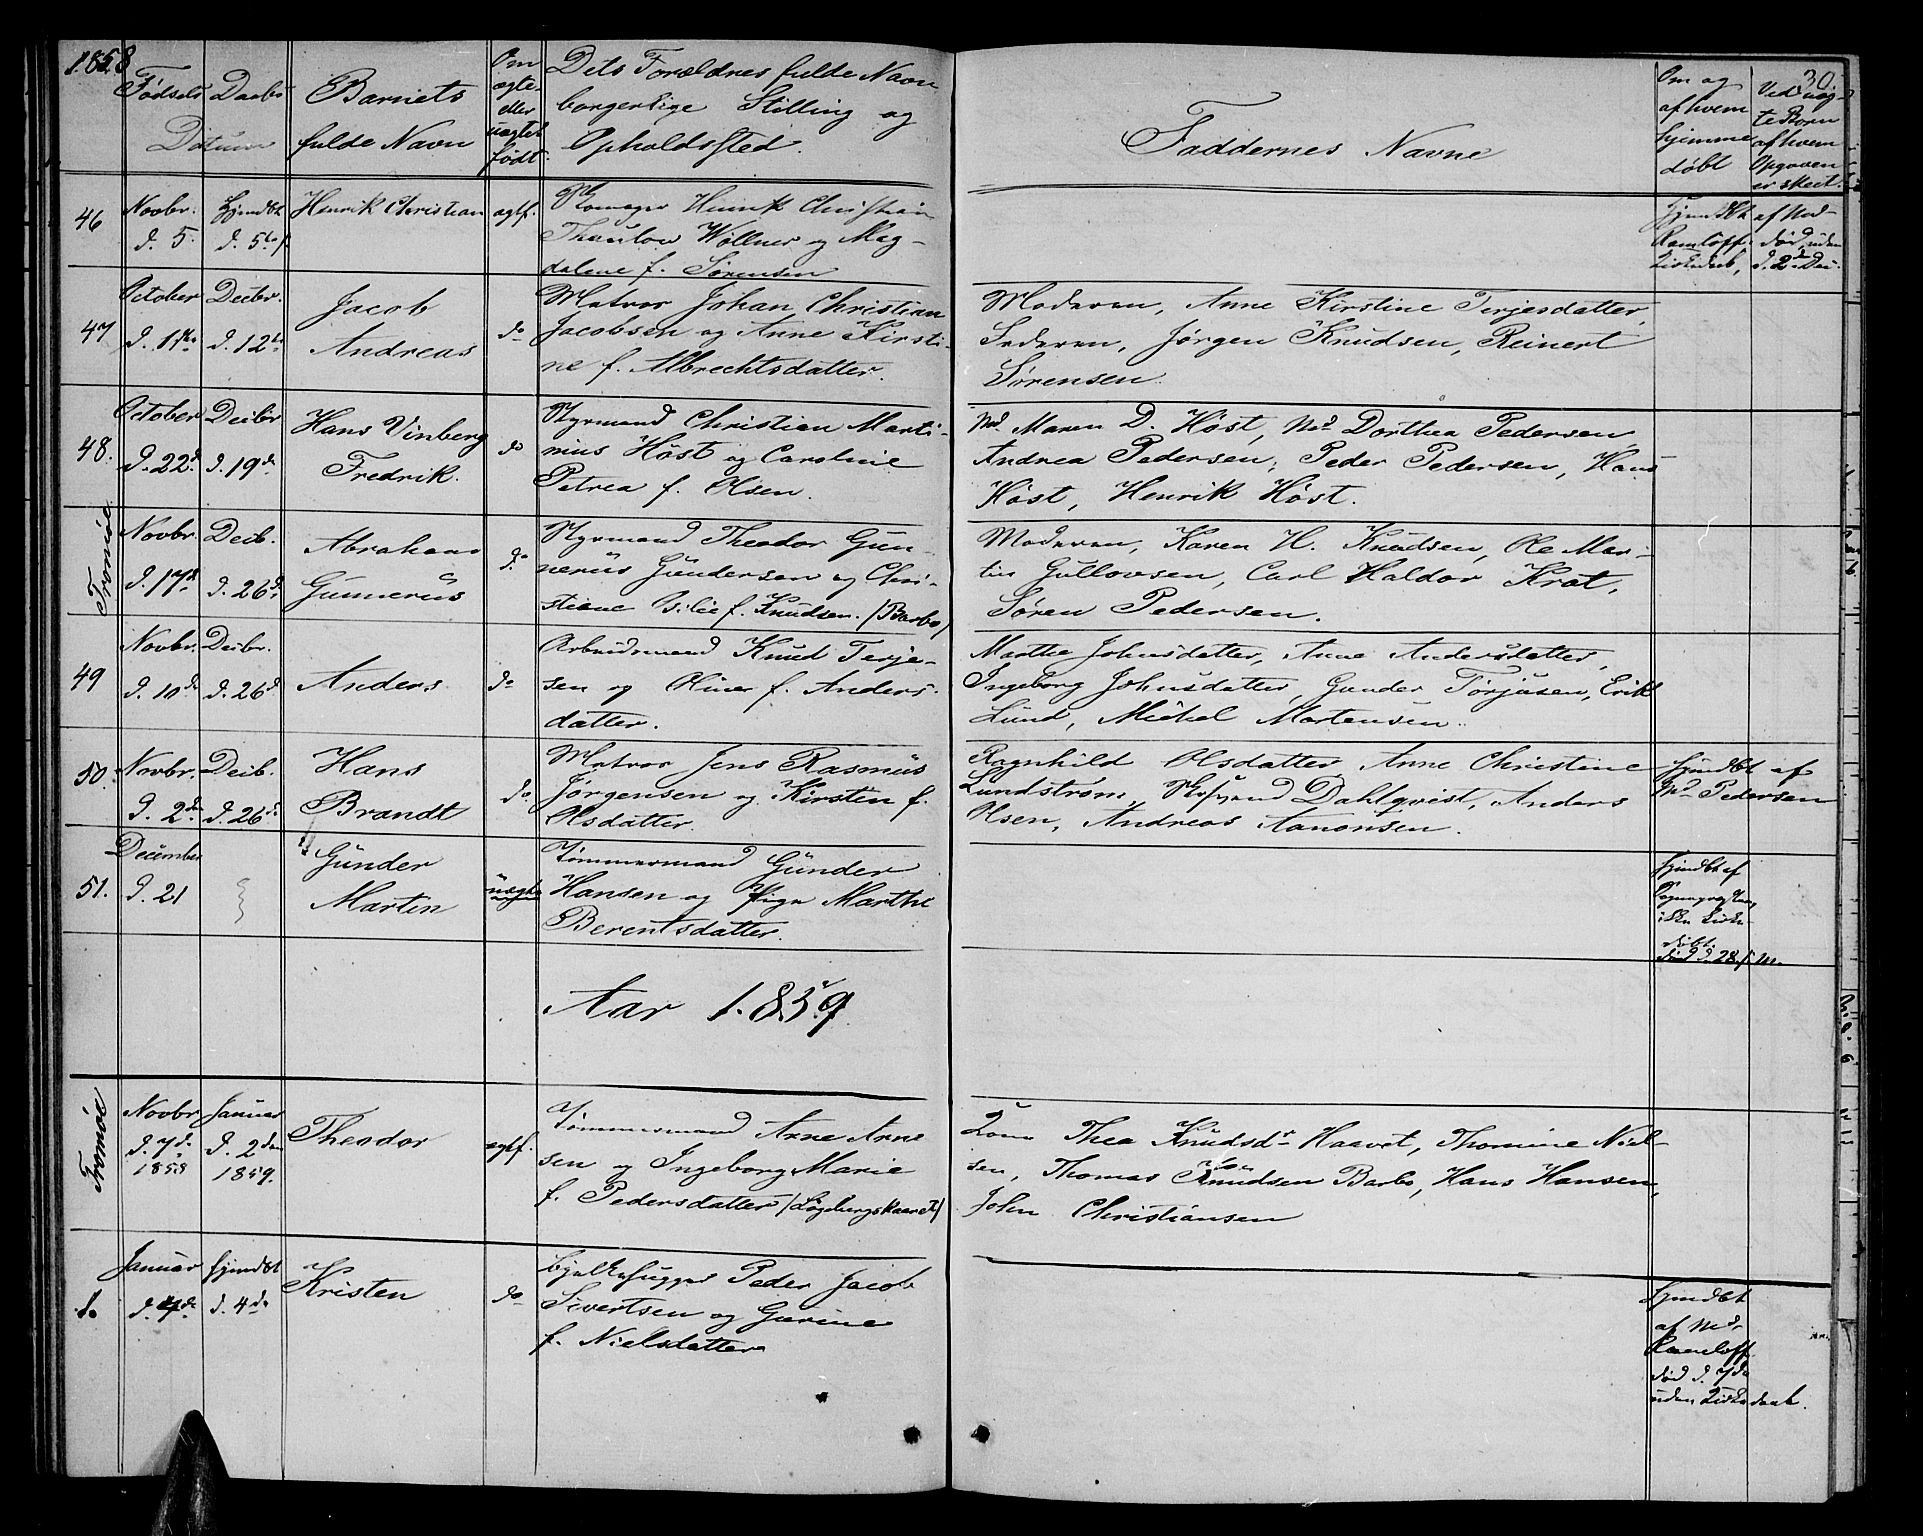 1858
30.
Fødsels Daabs
Datum
Barnets
fulde Navn
Om
ægte
eller
uægte
født.
Dets Forældres fulde Navn
borgerlige Stilling og
Opholdssted.
Faddernes Navne
Om og
af hvem
hjemme
døbt
Ved uæg-
te Børn
af hvem
Opgaven
er skeet.
46
Novbr.
d. 5.
Hjemdbt
d. 5te
Henrik Christian
ægtf.
Henrik Christian
Thaulow Wøllner og Mag-
dalene f. Sørensen
Hjemdbt af Mad.
Ramløff. død uden
Kirkedaab,
47
October
d. 1ste
Decbr.
d. 12te
Jacob
Andreas
do
Matros Johan Christian
Jacobsen og Anne Kirsti-
ne f. Albrechtsdatter.
Moderen, Anne Kirstine Terjesdatter,
Faderen, Jørgen Knudsen, Reinert
Sørensen.
48.
October
d. 22d.
Decbr
d. 19d.
Hans Vinberg
Fredrik.
do
Styrmand Christian Marti-
nius Høst og Caroline
Petrea f. Olsen.
Md. Maren D. Høst, Md. Dorthea Pedersen,
Andrea Pedersen, Peder Pedersen, Hans
Høst, Henrik Høst.
Tromøe
Novbr.
d. 17d.
Decb.
d. 26d.
Abraham
Gunnerius
do
Styrmand Theodor Gun-
nerius Gundersen og Chri-
stiane f. Knudsen. (Barbo)
Moderen, Karen H. Knudsen, Ole Mar-
tin Gullovsen, Carl Haldor Krat,
Søren Pedersen.
49
Novbr.
d. 10de
Decbr.
d. 26d.
Anders
do
Arbeidsmand Knud Terje-
sen og Oline f. Anders-
datter.
Marthe Johnsdatter, Anne Andersdatter,
Ingeborg Johnsdatter, Gunder Torjusen, Erik
Lund, Michel Mortensen.
50.
Novbr.
d. 2d.
Decb.
d. 26d.
Hans
Brandt
do
Matros Jens Rasmus
Jørgensen og Kirsten f.
Olsdatter.
Ragnhild Olsdatter Anne Christine
Lundstrøm, Dahlqvist, Anders
Olsen, Andreas Aanonsen.
hjemdbt af
Md. Pedersen
51.
December
d. 21
Gunder
Martin
uægte
Tømmermand Gunder
Hansen og Pige Marthe
Berentsdatter.
Hjemdbt af
ikke Kirke
døbt.
død d. 28
Aar 1859.
Tromøe
Novbr
d. 7d.
1858
Januar
d. 2den
1859.
Theodor
ægtf.
Tømmermand Arne Arne
sen og Ingeborg Marie
f. Pedersdatter (Løgebergskaaret)
Kone Thea Knudsdr Haavet, Thomine Niel-
sen, Thomas Knudsen Barbo, Hans Hansen,
John Christiansen
1.
Januar
d. 4d.
hjemdbt
d. 4de
Kristen
do
Bjelkehugger Peder Jacob
Sivertsen og Gurine
f. Nielsdatter
Hjemdbt
af Md.
Ramløff.
død d. 7de
uden Kirkedaab.